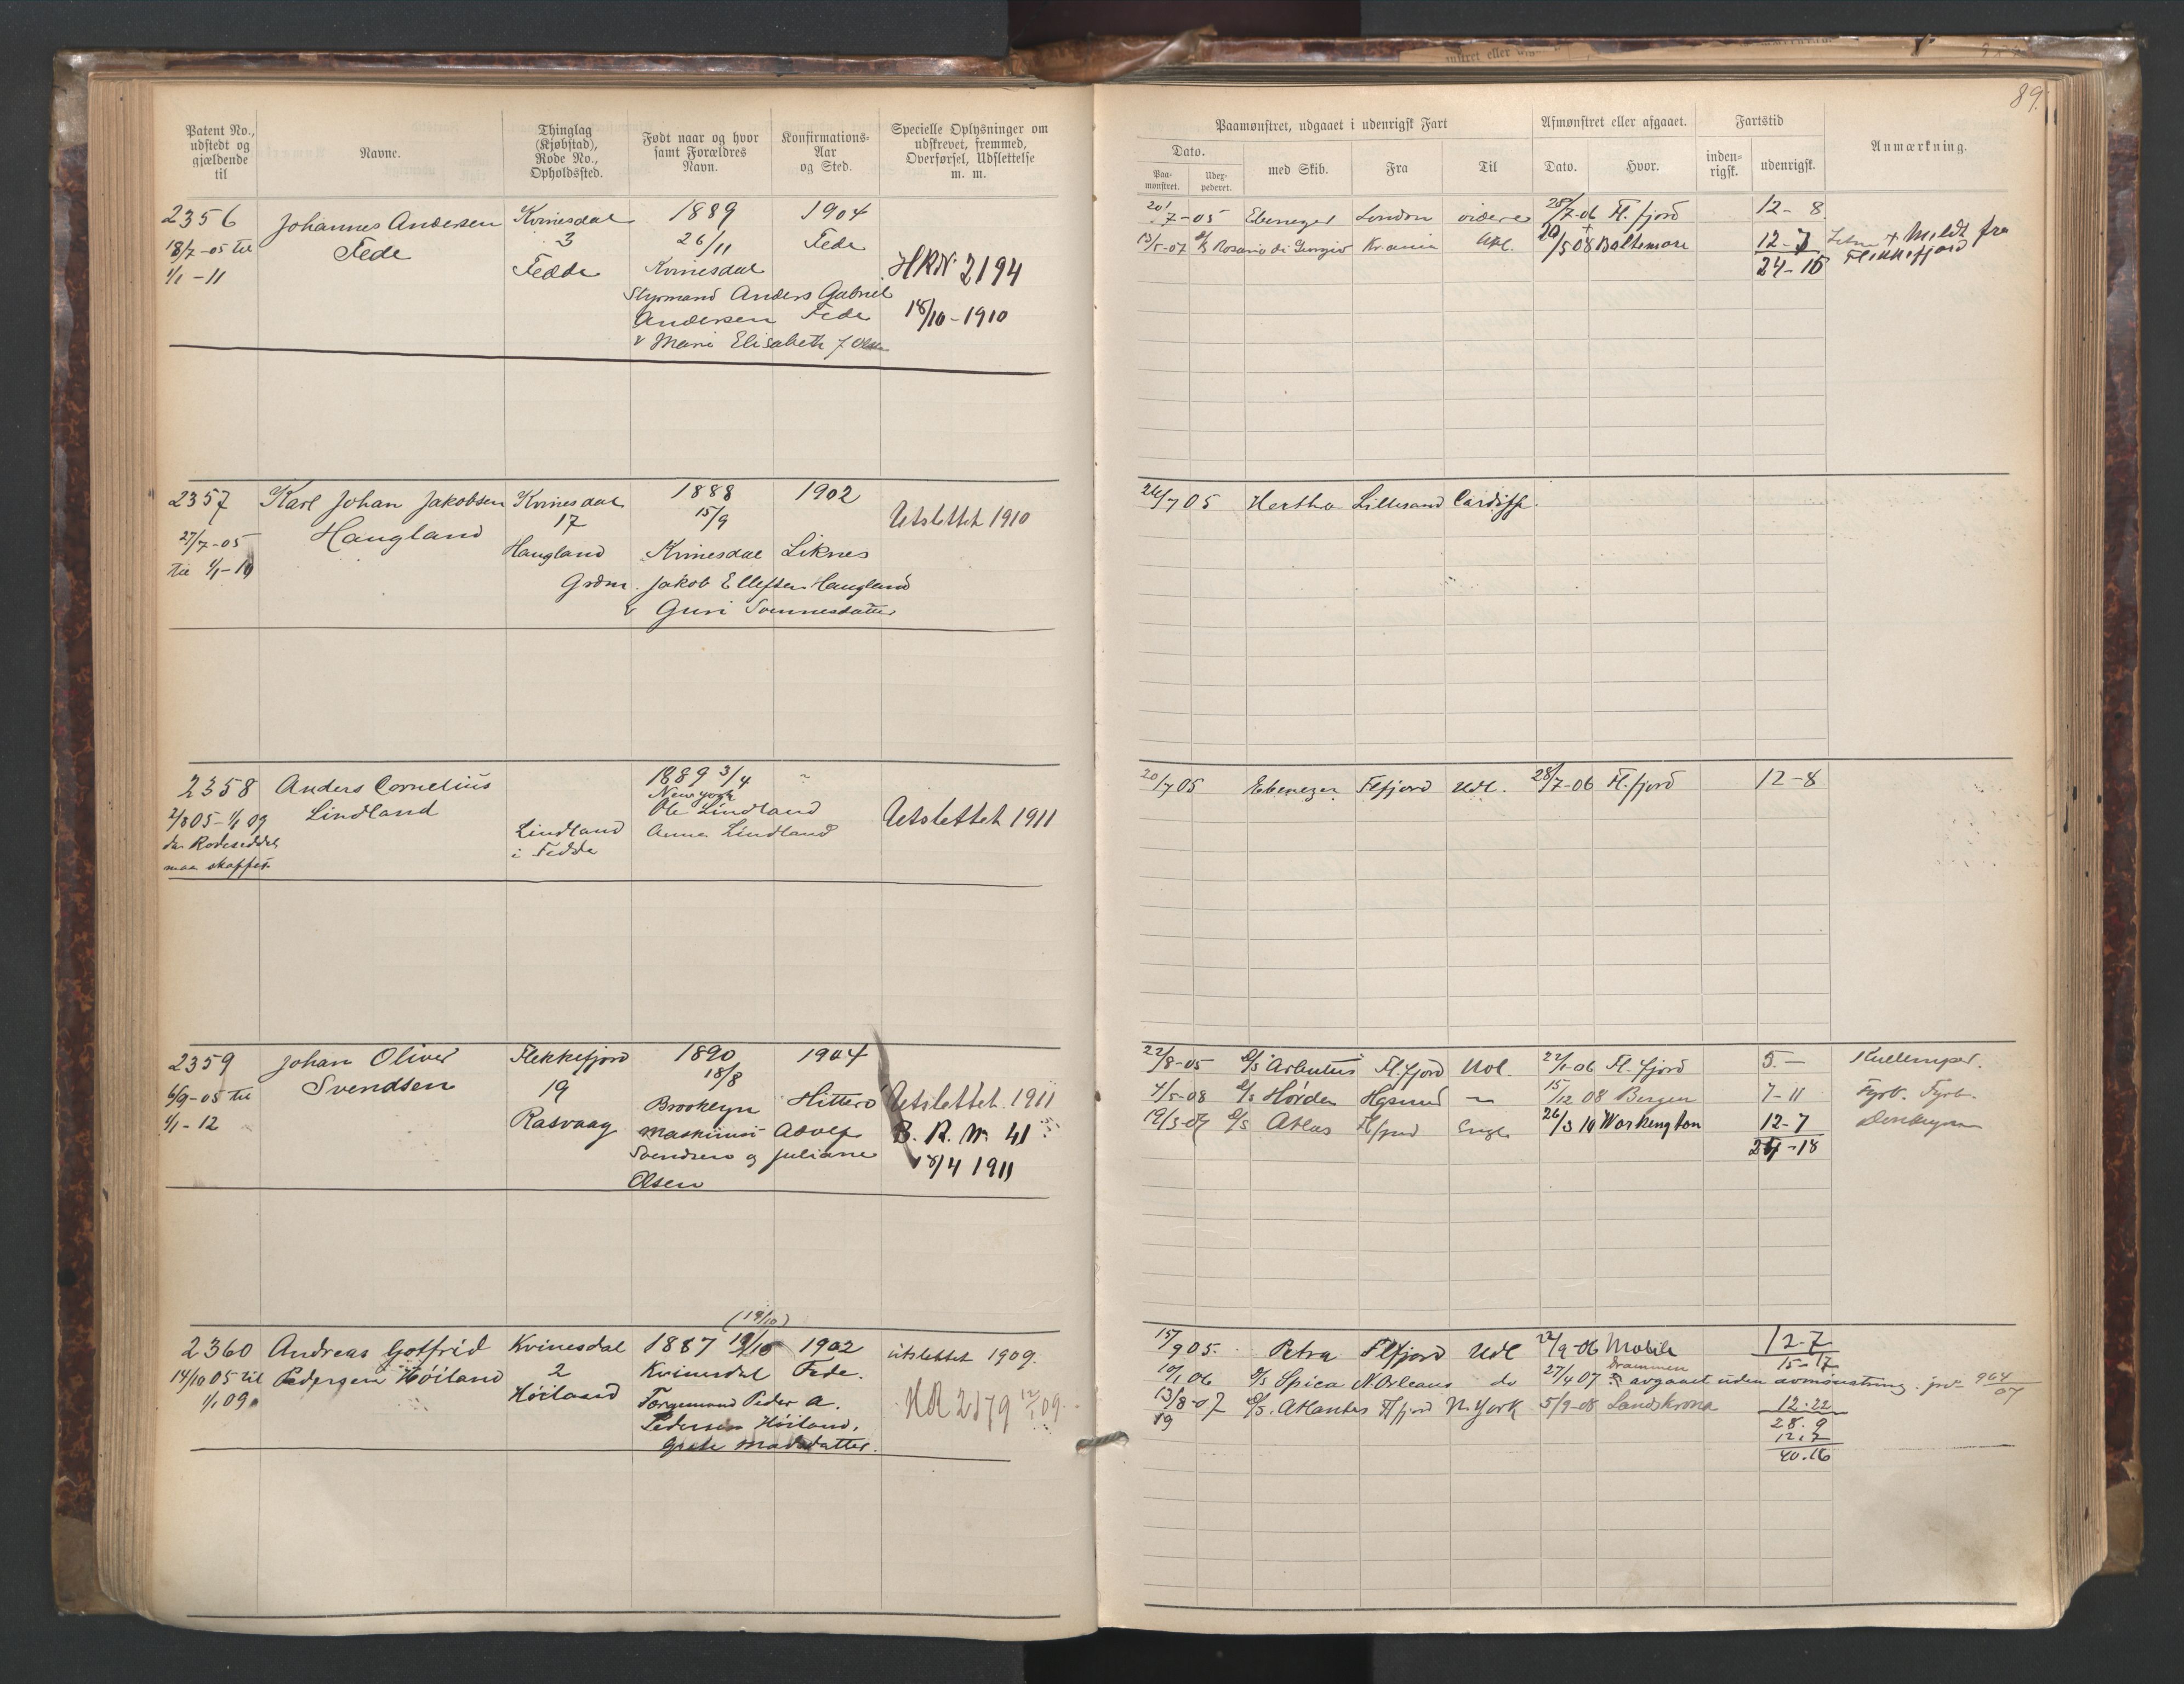 89.
Patent No., udstedt og gjældende til
Navne.
Thinglag (Kjøbstad), Rode No., Opholdssted.
Født naar og hvor samt Forældres Navn.
Konfirmations-Aar og Sted.
Specielle Oplysninger om udskrevet, fremmed, Overførsel, Udslettelse m. m.
Paamønstret, udgaaet i udenrigsk Fart
Afmønstret eller afgaaet.
Fartstid
Anmærkning.
Dato.
Paa-mønstret.
Udex-pederet.
med Skib.
Fra
Til
Dato.
Hvor.
inden-rigsk.
udenrigsk.
2356 Johannes Andersen Kvinesdal 1889 1904
18/7-05 til Fede 3 26/11 Fede
1/1-11 Fedde Kvinesdal HRN 2194
Styrmand Anders Gabriel
Andersen Fede 18/10-1910
& Mari Elisabeth
20/7-05 Ebenezer London videre 28/7-06 Fl. fjord 12-8
13/5-07 Rosario di Giorgio Kr.ania Udl. 20/5 08 Baltemore 12-7 Meldt fra
24-15 Flekkefjord
2357 Karl Johan Jakobsen Kvinesdal 1888 1902
27/7-05 Haugland 17 15/9 Utslettet 1910
til 1/1-10 Haugland Kvinesdal Liknes
Grdm. Jakob Ellefsen Haugland
& Guri Sonnesdatter
26/7 05 Hertha Lillesand Cardiff.
2358 Anders Cornelius 1889 3/4
Lindland New York
2/8 05-1/1 09 Ole Lindland Utslettet 1911
da Rodeseddel Lindland Anna Lindland
maa skaffes i Fedde
20/7 05 Ebenezer Flfjord Udl. 28/7-06 Fl. fjord 12-8
2359 Johan Oliver Flekkefjord 1890 1904
6/9-05 til Svendsen 19 18/8
1/1-12 Rasvaag Brooklyn Hitterø Utslettet 1911
Maskinist Adolf B. R. Nr. 41
Svendsen og Juliane 18/4 1911
Olsen
22/8-05 D/S Arbutus Fl. fjord Udl. 22/1-06 Fl. fjord 5.— Kullemper.
4/5-08 D/S Hörda Hgsund 15/12 08 Bergen 7-11 Fyrb. Fyrb.
19/3-09 D/S Atlas Engl. 26/3 10 Workington 12-7
24-18
(19/10)
2360 Andreas Gotfrid Kvinesdal 1887 19/10 1902 utslettet 1909.
14/10 05 til Pedersen Höiland 2 Kvinesdal Fede.
1/1 09 Höiland Peder A. HR 2179 12/1 09
Pedersen Höiland,
Grete Madsdatter.
15/9 05 Petra Flfjord Udl 22/9-06 Mobile 12-7
Drammen 15-17
10/1 06 D/S Spica N Orleans do 27/4 07 avgaaet uden avmönstring jnr 964/07
13/8-07 D/S. Atlantis N. York 5/9-08 Landskrona 12.22
19 28.9
12.7
40.16